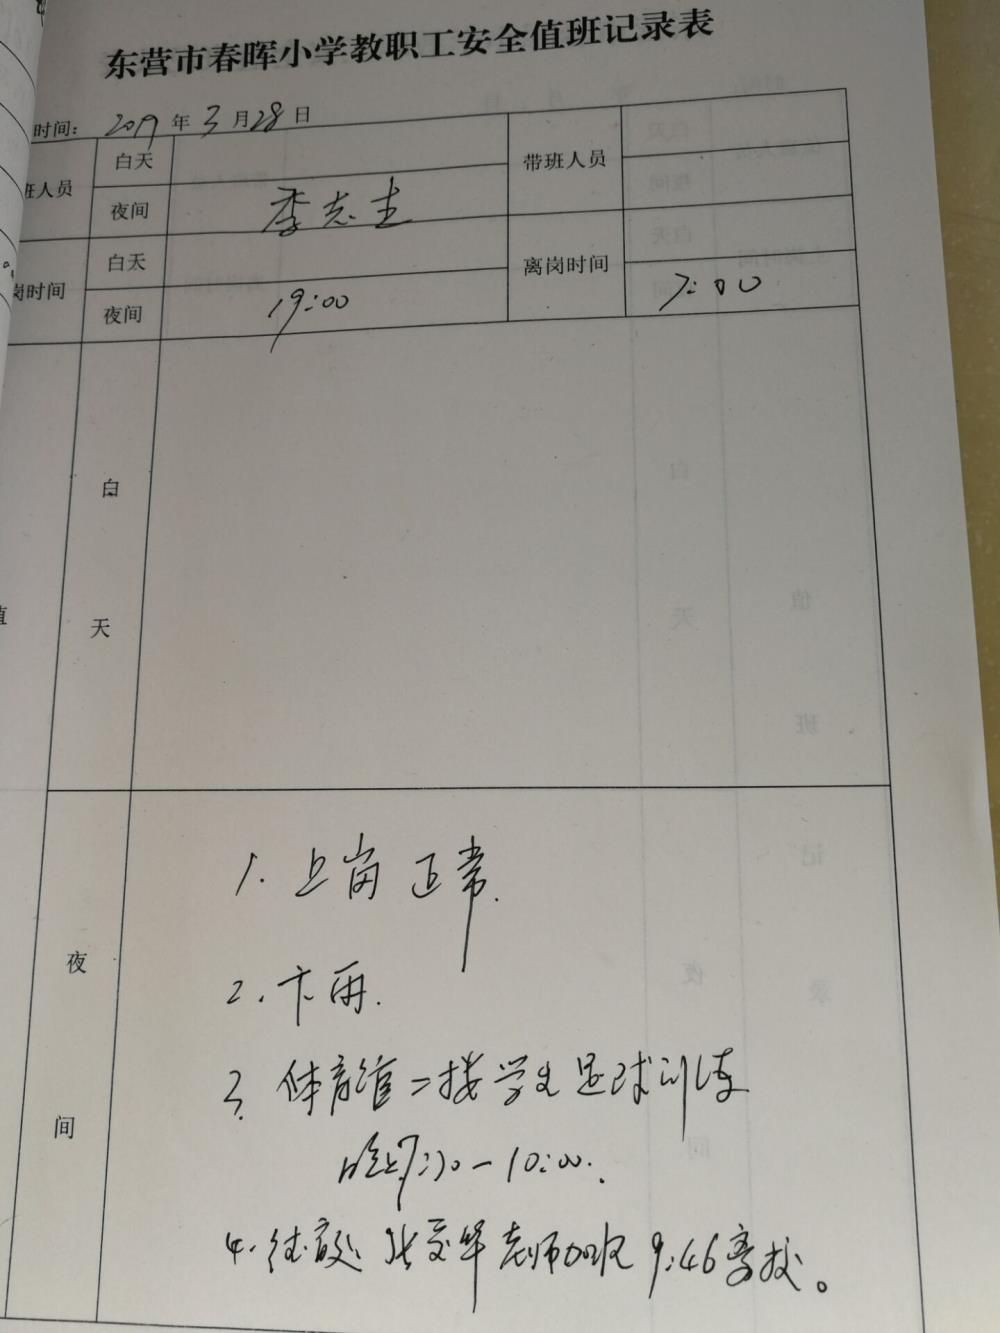 东营市春晖小学教职工安全值班记录表
时间: 2019 年 3 月 28 日
班人员 白天 带班人员
夜间 李志生
岗时间 白天 离岗时间
夜间 19:00 7:00
值
白
天
夜
间
1. 上岗正常.
2. 下雨.
3. 体育馆一楼学生足球训练
晚上7:30-10:00.
4. 老师加班 9:46离校。